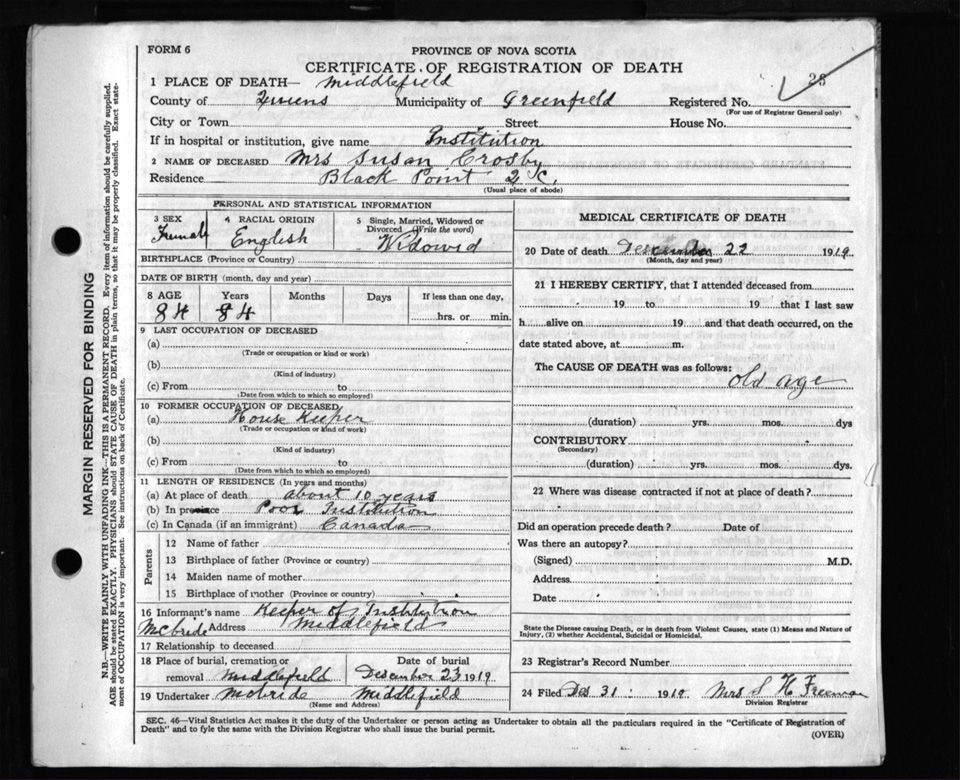 FORM 6
PROVINCE OF NOVA SCOTIA
CERTIFICATE OF REGISTRATION OF DEATH
1 PLACE OF DEATH— Middlefield
County of Queens Municipality of Greenfield Registered No. 28
(For use of Registrar General only)
City or Town Street House No.
If in hospital or institution, give name Institution
2 NAME OF DECEASED Mrs Susan Crosby
Residence Black Point 2 C.
(Usual place of abode)
PERSONAL AND STATISTICAL INFORMATION
3 SEX 4 RACIAL ORIGIN 5 Single, Married, Widowed or
Divorced (Write the word)
Femal English Widowed
BIRTHPLACE (Province or Country)
DATE OF BIRTH (month, day and year)
8 AGE Years Months Days If less than one day,
84 84 hrs. or min.
9 LAST OCCUPATION OF DECEASED
(a)
(Trade or occupation or kind or work)
(b)
(Kind of industry)
(c) From to
(Date from which to which so employed)
10 FORMER OCCUPATION OF DECEASED
(a) House Keeper
(Trade or occupation or kind of work)
(b)
(Kind of industry)
(c) From to
(Date from which to which so employed)
11 LENGTH OF RESIDENCE (In years and months)
(a) At place of death about 10 years
(b) In Poor Institution
(c) In Canada (if an immigrant) Canada
Parents
12 Name of father
13 Birthplace of father (Province or country)
14 Maiden name of mother
15 Birthplace of mother (Province or country)
16 Informant's name Keeper of Institution
Mcbride Address Middlefield
17 Relationship to deceased
18 Place of burial, cremation or Date of burial
removal Middlefield December 23 1919
19 Undertaker Mcbride Middlefield
(Name and Address)
MEDICAL CERTIFICATE OF DEATH
20 Date of death December 22 1919
(Month, day and year)
21 I HEREBY CERTIFY, that I attended deceased from
19 to 19 that I last saw
h alive on 19 and that death occurred, on the
date stated above, at m.
The CAUSE OF DEATH was as follows:
old age
(duration) yrs. mos. dys
CONTRIBUTORY
(Secondary)
(duration) yrs. mos. dys.
22 Where was disease contracted if not at place of death?
Did an operation precede death? Date of
Was there an autopsy?
(Signed) M.D.
Address
Date
State the Disease causing Death, or in death from Violent Causes, state (1) Means and Nature of
Injury, (2) whether Accidental, Suicidal or Homicidal.
23 Registrar's Record Number
24 Filed Dec 31 1919 Mrs S H Freeman
Division Registrar
SEC. 46—Vital Statistics Act makes it the duty of the Undertaker or person acting as Undertaker to obtain all the particulars required in the "Certificate of Registration of
Death" and to fyle the same with the Division Registrar who shall issue the burial permit.
(OVER)
MARGIN RESERVED FOR BINDING
N.B.—WRITE PLAINLY WITH UNFADING INK—THIS IS A PERMANENT RECORD. Every item of information should be carefully supplied.
AGE should be stated EXACTLY. PHYSICIANS should STATE CAUSE OF DEATH in plain terms, so that it may be properly classified. Exact state-
ment of OCCUPATION is very important. See instructions on back of Certificate.